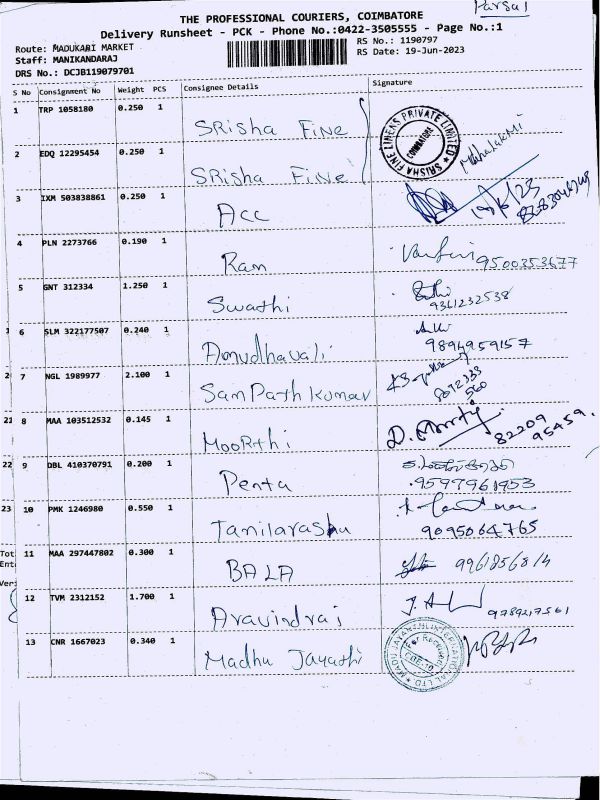 Parsal
THE PROFESSIONAL COURIERS, COIMBATORE
Delivery Runsheet - PCK - Phone No.:0422-3505555 - Page No.:1
Route: MADUKARI MARKET
RS No.: 1190797
Staff: MANIKANDARAJ
RS Date: 19-Jun-2023
DRS No.: DCJB119079701
S No Consignment No Weight PCS Consignee Details Signature
1 TRP 1058180 0.250 1 SRisha Fine
SRISHA FINE LINERS PRIVATE LIMITED
COIMBATORE
Mahalakshmi
2 EDQ 12295454 0.250 1 SRisha Fine
3 IXM 503838861 0.250 1 Acc 19/6/23
4 PLN 2273766 0.190 1 Ram 9500353677
5 GNT 312334 1.250 1 Swathi 9361232538
6 SLM 322177507 0.240 1 Amudhavali 9894959157
2 7 NGL 1989977 2.100 1 SamPath kumar
21 8 MAA 103512532 0.145 1 MooRthi D. Moorthy 82209 95459.
22 9 DBL 410370791 0.200 1 Penta 9597961953
23 10 PMK 1246980 0.550 1 Tamilarashu 9095064765
Tot
Ent
11 MAA 297447802 0.300 1 BALA 9961856814
Veri
12 TVM 2312152 1.700 1 Aravindraj 9789217561
13 CNR 1667023 0.340 1 Madhu Jayathi